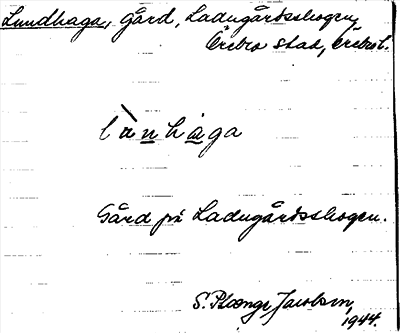 Lundhaga, Gård, Ladugårdsskogen,
Örebro stad, Örebro l.
lànhaga
Gård på Ladugårdsskogen.
S. Plænge Jacobson,
1944.